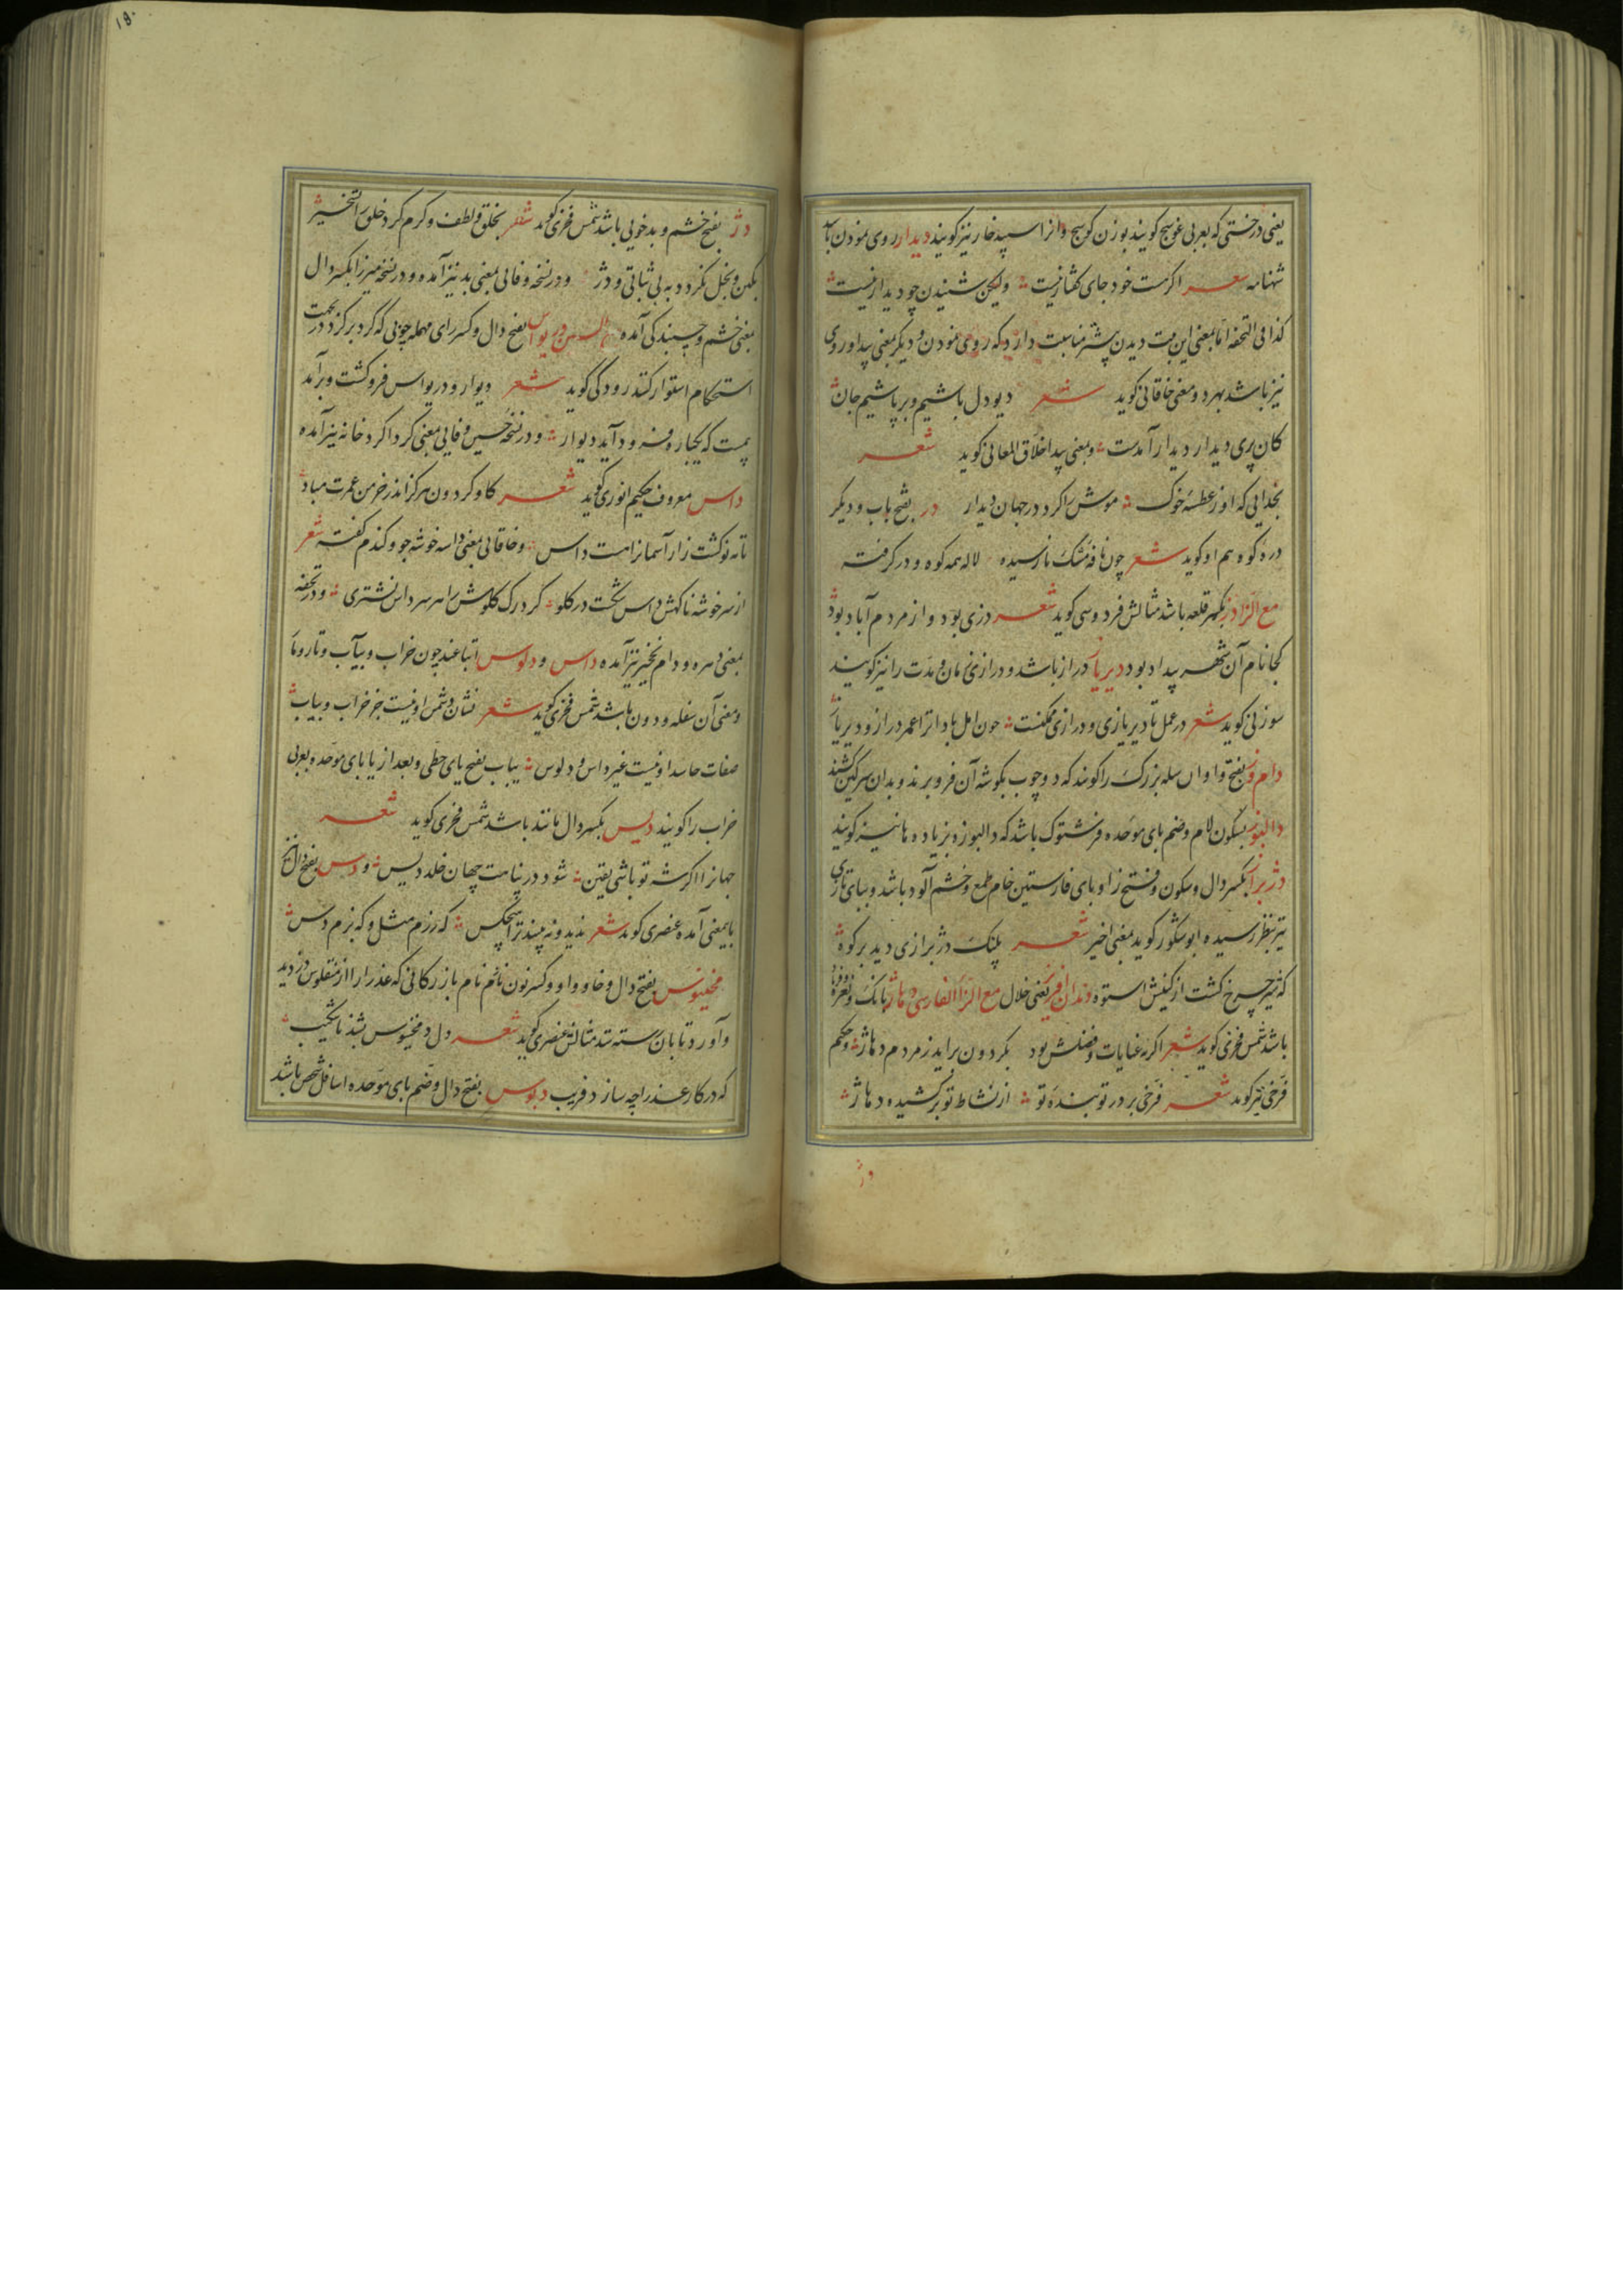 یعنی درختی که بعربی عوسج کویند بوزن کوسج وانرا سپید خار نیز کویند دیدار روی نمودن باشد
شهنامه شعر اکرمت خود جای کفتار نیست ولیکن شنیدن چو دیدار نیست
کذا فی التحفه اما بمعنی این بیت دیدن بیشتر مناسبت دارد که روی نمودن و دیکر بمعنی پیدا و روی
نیز باشد بهر دو معنی خاقانی کوید شعر دیو دل باشیم و برپاشیم جان
کان پری دیدار دیدار آمدست و بمعنی پیدا خلاق المعانی کوید شعر
بخدایی که او ز عطسه خوک موش را کرد در جهان دیدار در بفتح باب و دیکر
دره کوه هم او کوید شعر چون نافه مشک نارسیده لاله همه کوه و در کرفته
مع الزا دز بکسر قلعه باشد مثالش فردوسی کوید شعر دزی بود و از مردم آباد بود
کجا نام آن شهر پیداد بود دیریاز دراز باشد و درازی زمان و مدت را نیز کویند
سوزنی کوید شعر در عمل تا دیریازی و درازی ممکنست چون امل باد اترا عمر دراز و دیریاز
دام وز بفتح واو ان سله بزرک را کویند که دو چوب بکوشه آن فرو برند و بدان سرکین کشند
دالبوز بسکون لام و ضم بای موحده فرشتوک باشد که دالبوزه بزیاده ها نیز کویند
دژبراز بکسر دال و سکون و فتح زا و بای فارستین خام طمع و خشم آلود باشد و ببای تازی
نیز بنظر رسیده ابوشکور کوید بمعنی اخیر شعر پلنک دژبرازی دید بر کوه
که شیر چرخ کشت از کینش استوه دندان افریز یعنی خلال مع الزا الفارسی دهاژ بانک و نعره
باشد شمس فخری کوید شعر اکر نه عنایات و فضلش بود بکردون براید ز مردم دهاژ و حکیم
فرخی نیز کوید شعر فرخی بر در تو بنده تو از نشاط تو برکشیده دهاژ
دژ
۱۵۰
دژ بفتح خشم و بدخویی باشد شمس فخری کوید شعر بخلق و لطف و کرم کرد خلق را تسخیر
بکین و بخل نکردد به بی ثباتی و دژ و در نسخه وفائی بمعنی بد نیز آمده و در نسخه میرزا بکسر دال
بمعنی خشم و چسبندکی آمده مع السین دریواس بفتح دال و کسر رای مهمله چوبی که کرد بر کرد در بجهت
استحکام استوار کنند رودکی کوید شعر دیوار و دریواس فرو کشت و برآمد
بیمست که یکباره فرود آید دیوار و در نسخه حسین وفایی بمعنی کرداکرد خانه نیز آمده
داس معروف حکیم انوری کوید شعر کاو کردون هرکز اندر خرمن عمرت مباد
تا مه نو کشت زار آسمان را مت داس و خاقانی بمعنی داسه خوشه جو و کندم کفته شعر
از سر خوشه ناکهش داس شکست در کلو کر در رک کلوش را هر سر داس نشتری و در تحفه
بمعنی دهره و دام نخجیر نیز آمده داس و دلوس اتباعند چون خراب و یباب و تار و مار
و معنی آن سفله و دون باشد شمس فخری کوید شعر نشان دشمن او نیست جز خراب و یباب
صفات حاسد او نیست غیر داس و دلوس یباب بفتح یای حطی و بعد از یا بای موحده بعربی
خراب را کویند دیس بکسر دال مانند باشد شمس فخری کوید شعر
جهانرا اکر شه تو باشی یقین شود در پناهت جهان خلد دیس و دس بفتح دال نیز
باین معنی آمده عنصری کوید شعر ندید و نه بیند ترا هیچکس که رزم مثل و که بزم دس
دخنیوس بفتح دال و خا و واو و کسر نون نام نام بازرکانی که عذرا را از منقلوس دزدید
وآورد تا بان رسته شد مثالش عنصری کوید شعر دل دمخنیوس بشد ناشکیب
که در کار عذرا چه سازد فریب دبوس بفتح دال و ضم بای موحده اسافل شخص باشد